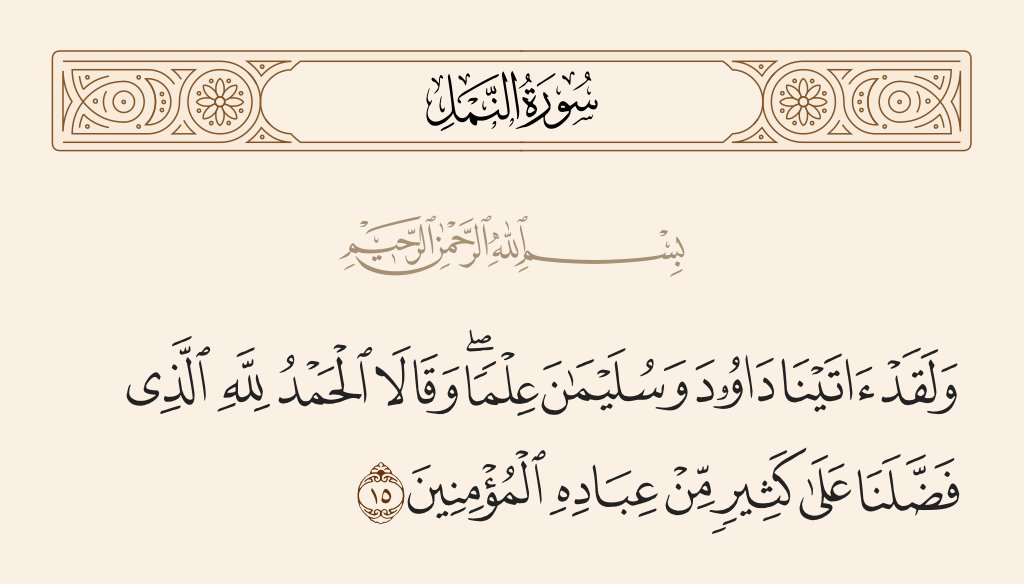 سُورَةُ النَّمْلِ
بِسْمِ ٱللَّهِ ٱلرَّحْمَٰنِ ٱلرَّحِيمِ
وَلَقَدْ ءَاتَيْنَا دَاوُۥدَ وَسُلَيْمَٰنَ عِلْمًاۖ وَقَالَا ٱلْحَمْدُ لِلَّهِ ٱلَّذِى
فَضَّلَنَا عَلَىٰ كَثِيرٍ مِّنْ عِبَادِهِ ٱلْمُؤْمِنِينَ ١٥